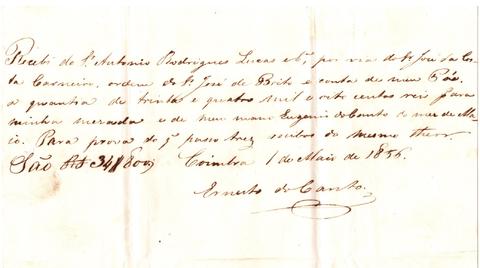 Recebi do Sr. Antonio Rodrigues Lucas e Cª, por via do Sr. José da Cos-
ta Carneiro, ordem do Sr. José de Brito e conta de meu Pae,
a quantia de trinta e quatro mil e oito centos reis para
minha mezada e de meu mano Eugenio do Canto do mez de Ma-
io. Para prova do q. passo trez recibos do mesmo theor.
São Rs 34$800 Coimbra 1 de Maio de 1856.
Ernesto do Canto